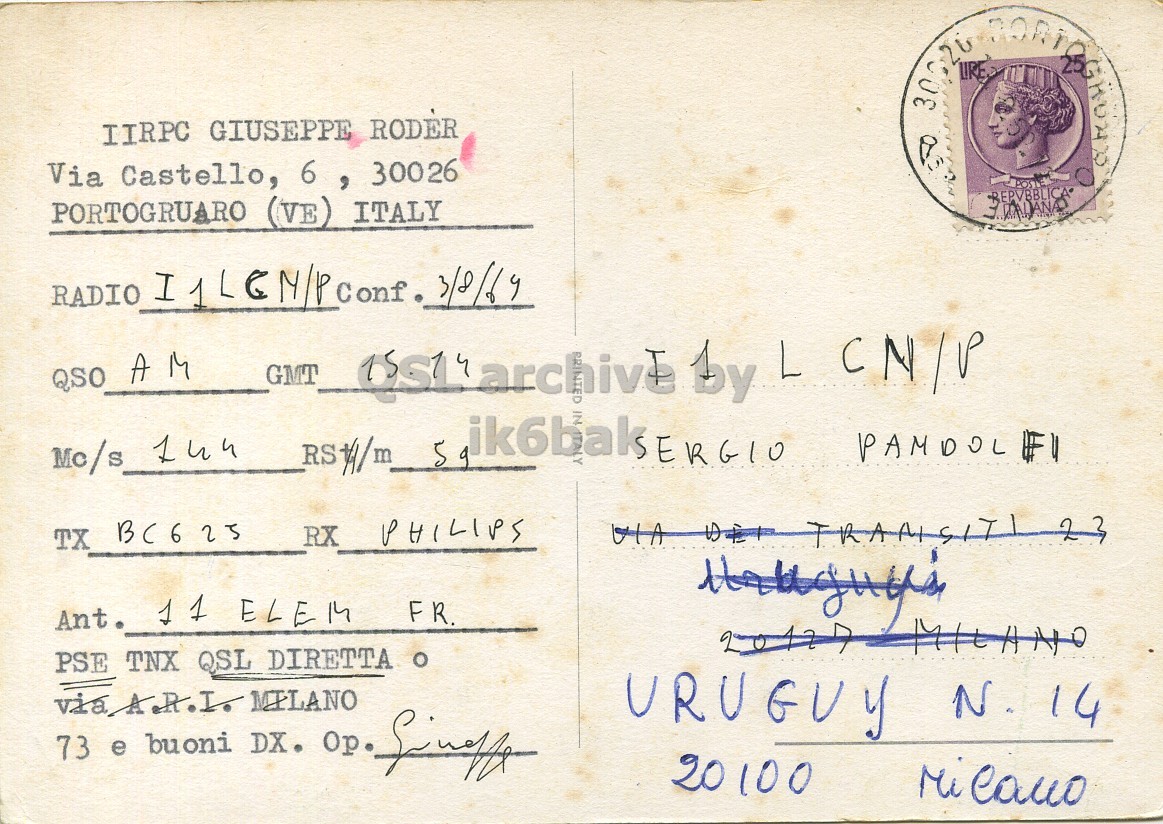 IIRPC GIUSEPPE RODÈR
Via Castello, 6 , 30026
PORTOGRUARO (VE) ITALY
RADIO I1LCN/P Conf. 3/8/69
QSO AM GMT 15.14
Mc/s 144 RSt/m 59
TX BC625 RX PHILIPS
Ant. 11 ELEM FR.
PSE TNX QSL DIRETTA o
via A.R.I. MILANO
73 e buoni DX. Op. Giuseppe
PRINTED IN ITALY
30026 PORTOGRUARO
LIRE 25
POSTE
REPVBBLICA
ITALIANA
I1 LCN/P
SERGIO PANDOLFI
VIA DEI TRANSITI 23
20127 MILANO
URUGUY N. 14
20100 Milano
QSL archive by
ik6bak